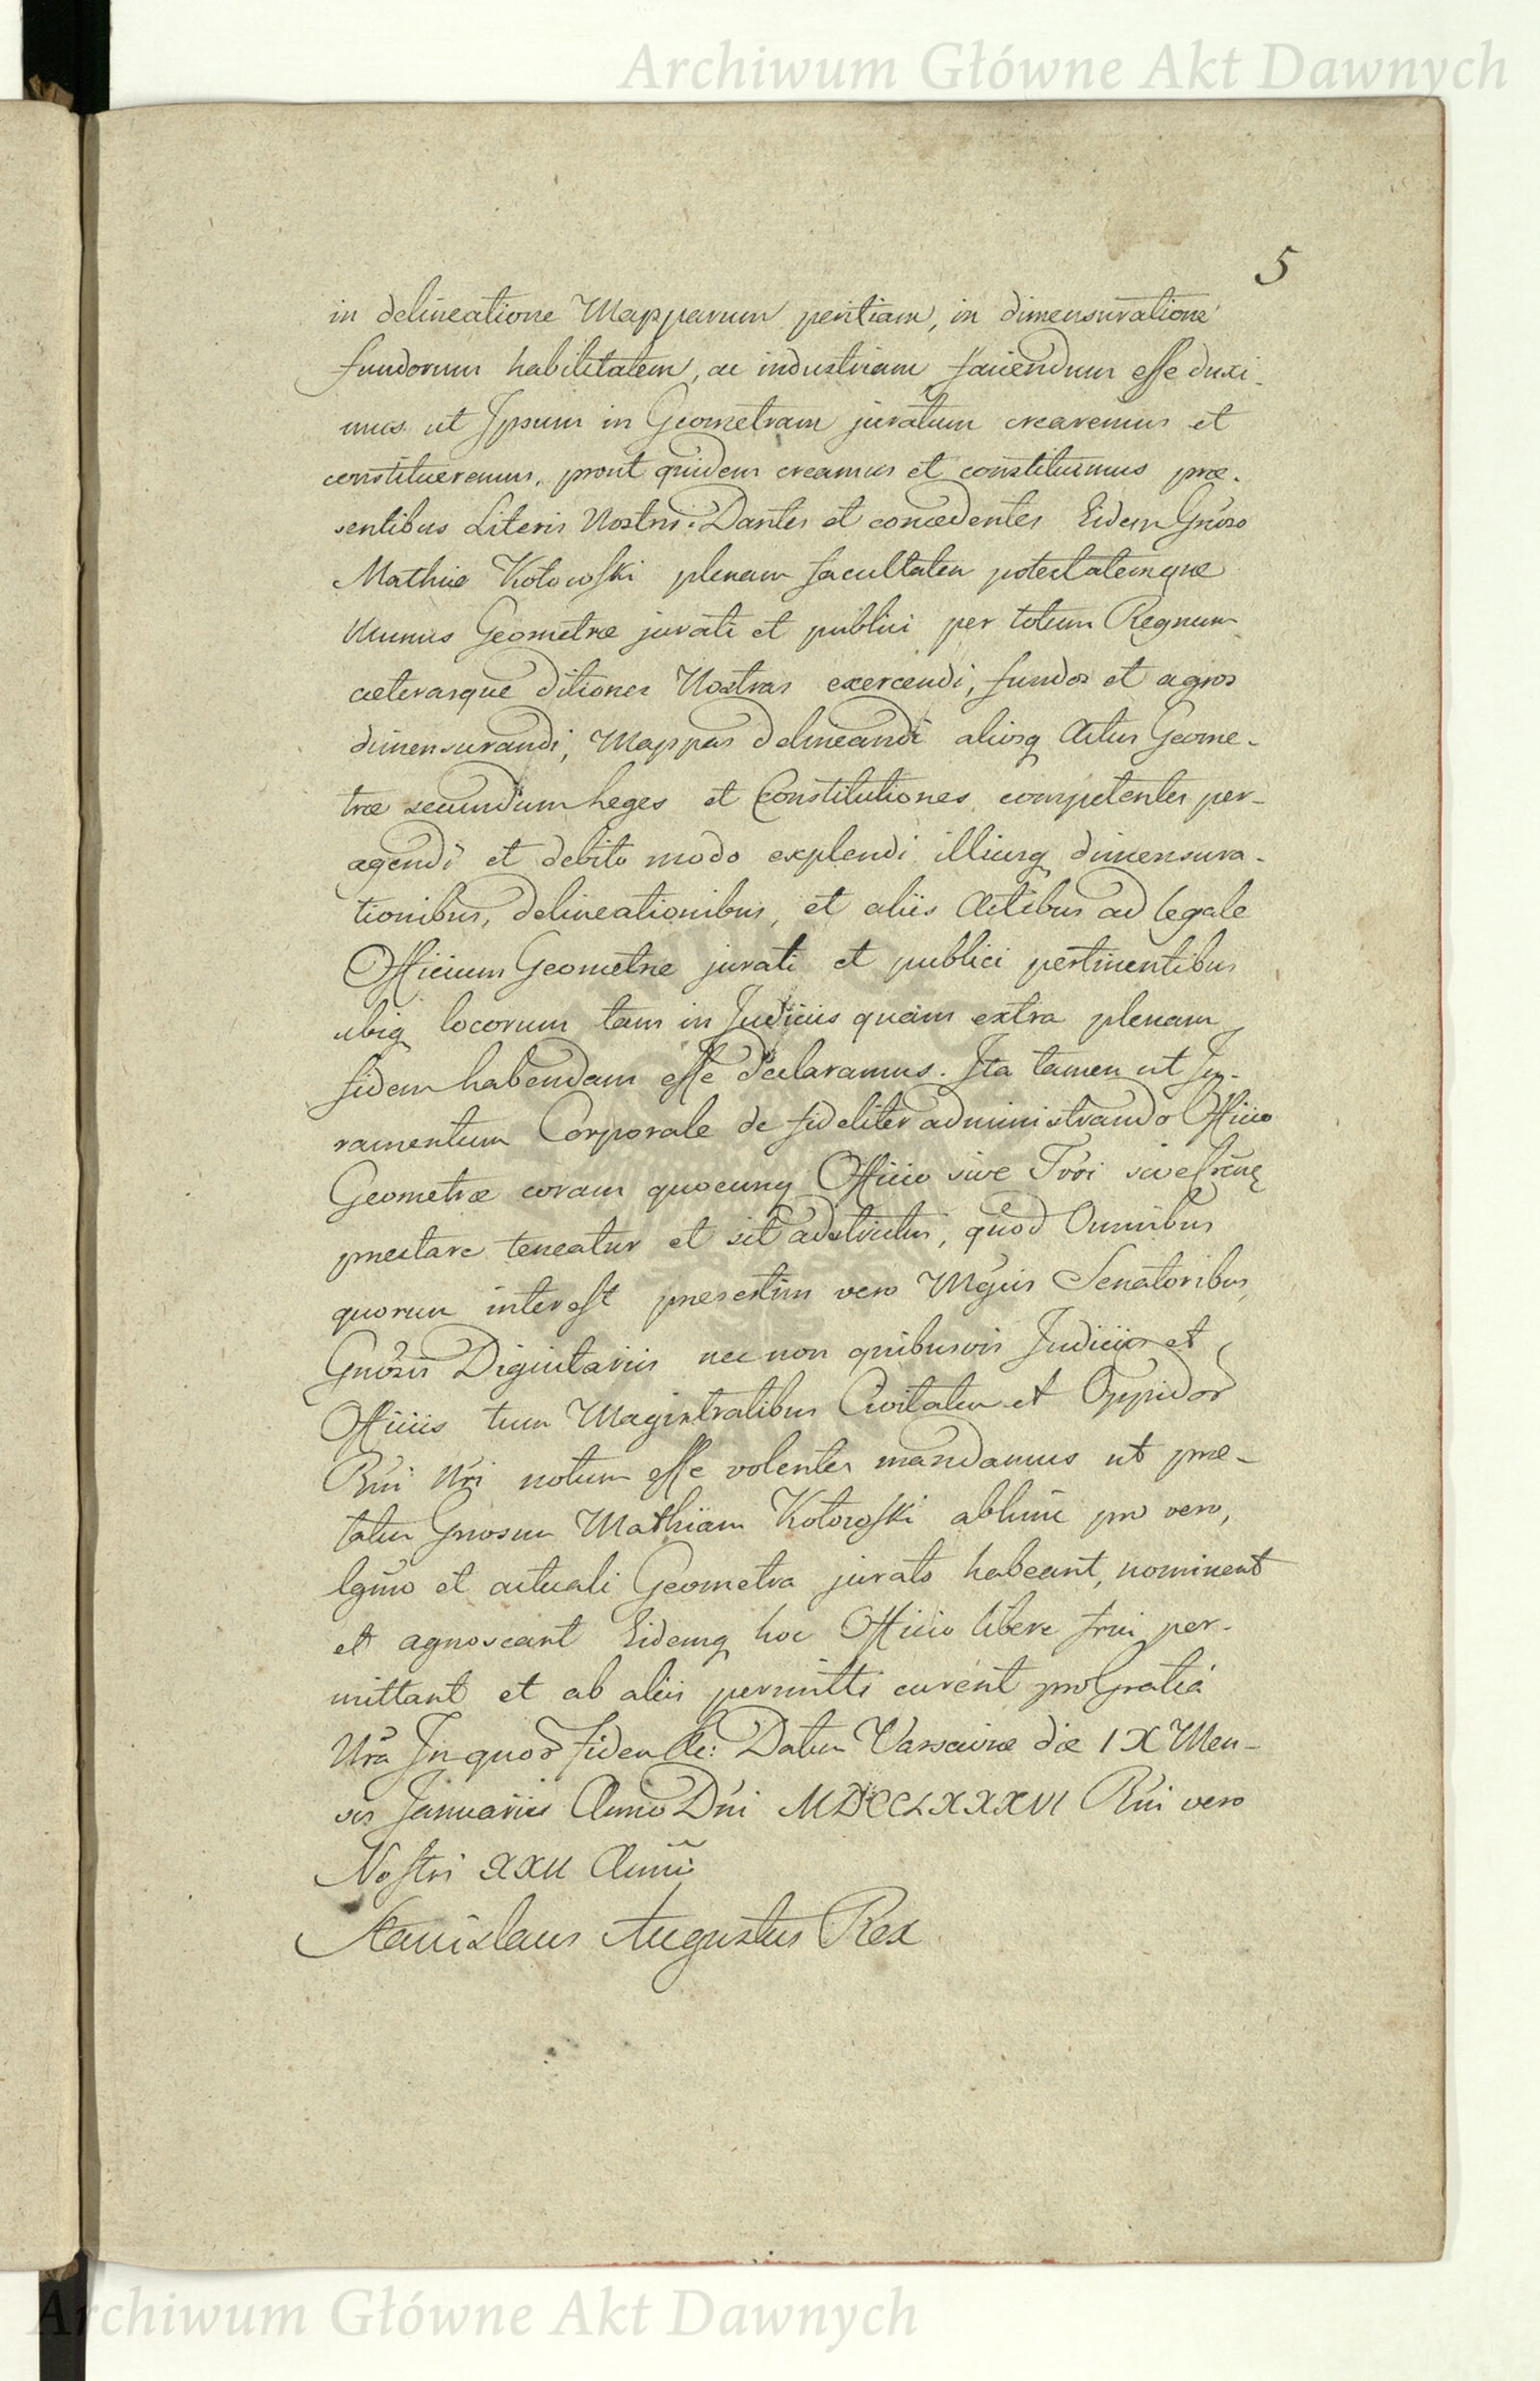 Archiwum Główne Akt Dawnych
5
in delineatione Mapparum peritiam, in dimensuratione
fundorum habilitatem, ac industriam faciendum esse duxi-
mus ut Ipsum in Geometram juratum crearemus et
constitueremus, prout quidem creamus et constituimus præ-
sentibus Literis Nostris: Dantes et concedentes Eidem Gnõso
Mathiæ Kotowski plenam facultatem potestatemque
Munus Geometræ jurati et publici per totum Regnum
cæterasque ditiones Nostras exercendi, fundos et agros
dimensurandi, Mappas delineandi aliosq Actus Geome-
træ secundum Leges et Constitutiones competentes per-
agendi et debito modo explendi illiusq dimensura-
tionibus, delineationibus, et aliis Actibus ad legale
Officium Geometræ jurati et publici pertinentibus
ubiq locorum tam in Judiciis quam extra plenam
fidem habendam esse declaramus. Ita tamen ut Ju-
ramentum Corporale de fideliter administrando Officio
Geometræ coram quocunq Officio sive Trri sive
præstare teneatur et sit adstrictus, quod Omnibus
quorum interest præsertim vero Mgcis Senatoribus,
Gnõsis Dignitariis nec non quibusvis Judiciis et
Officiis tum Magistratibus Civitatum et Oppidor
Rni Nri notum esse volentes mandamus ut præ-
tatum Gnosum Mathiam Kotowski abhinc pro vero,
lgmo et actuali Geometra jurato habeant, nominent
et agnoscant Eidemq hoc Officio libere frui per-
mittant et ab aliis permitti curent pro Gratia
Nra In quor fidem &c: Datum Varsaviæ die IX Men-
sis Januarii Anno Dni MDCCLXXXVI Rni vero
Nostri XXII Anni
Stanislaus Augustus Rex
Archiwum Główne Akt Dawnych